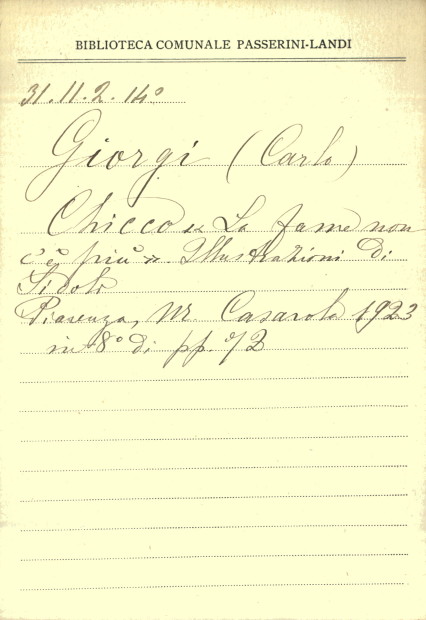 BIBLIOTECA COMUNALE PASSERINI-LANDI
31.11.2.14°
Giorgi (Carlo)
Chicco « La fame non
c'è più ». Illustrazioni di
Sidoli
Piacenza, M. Casarola 1923
in 8° di pp.